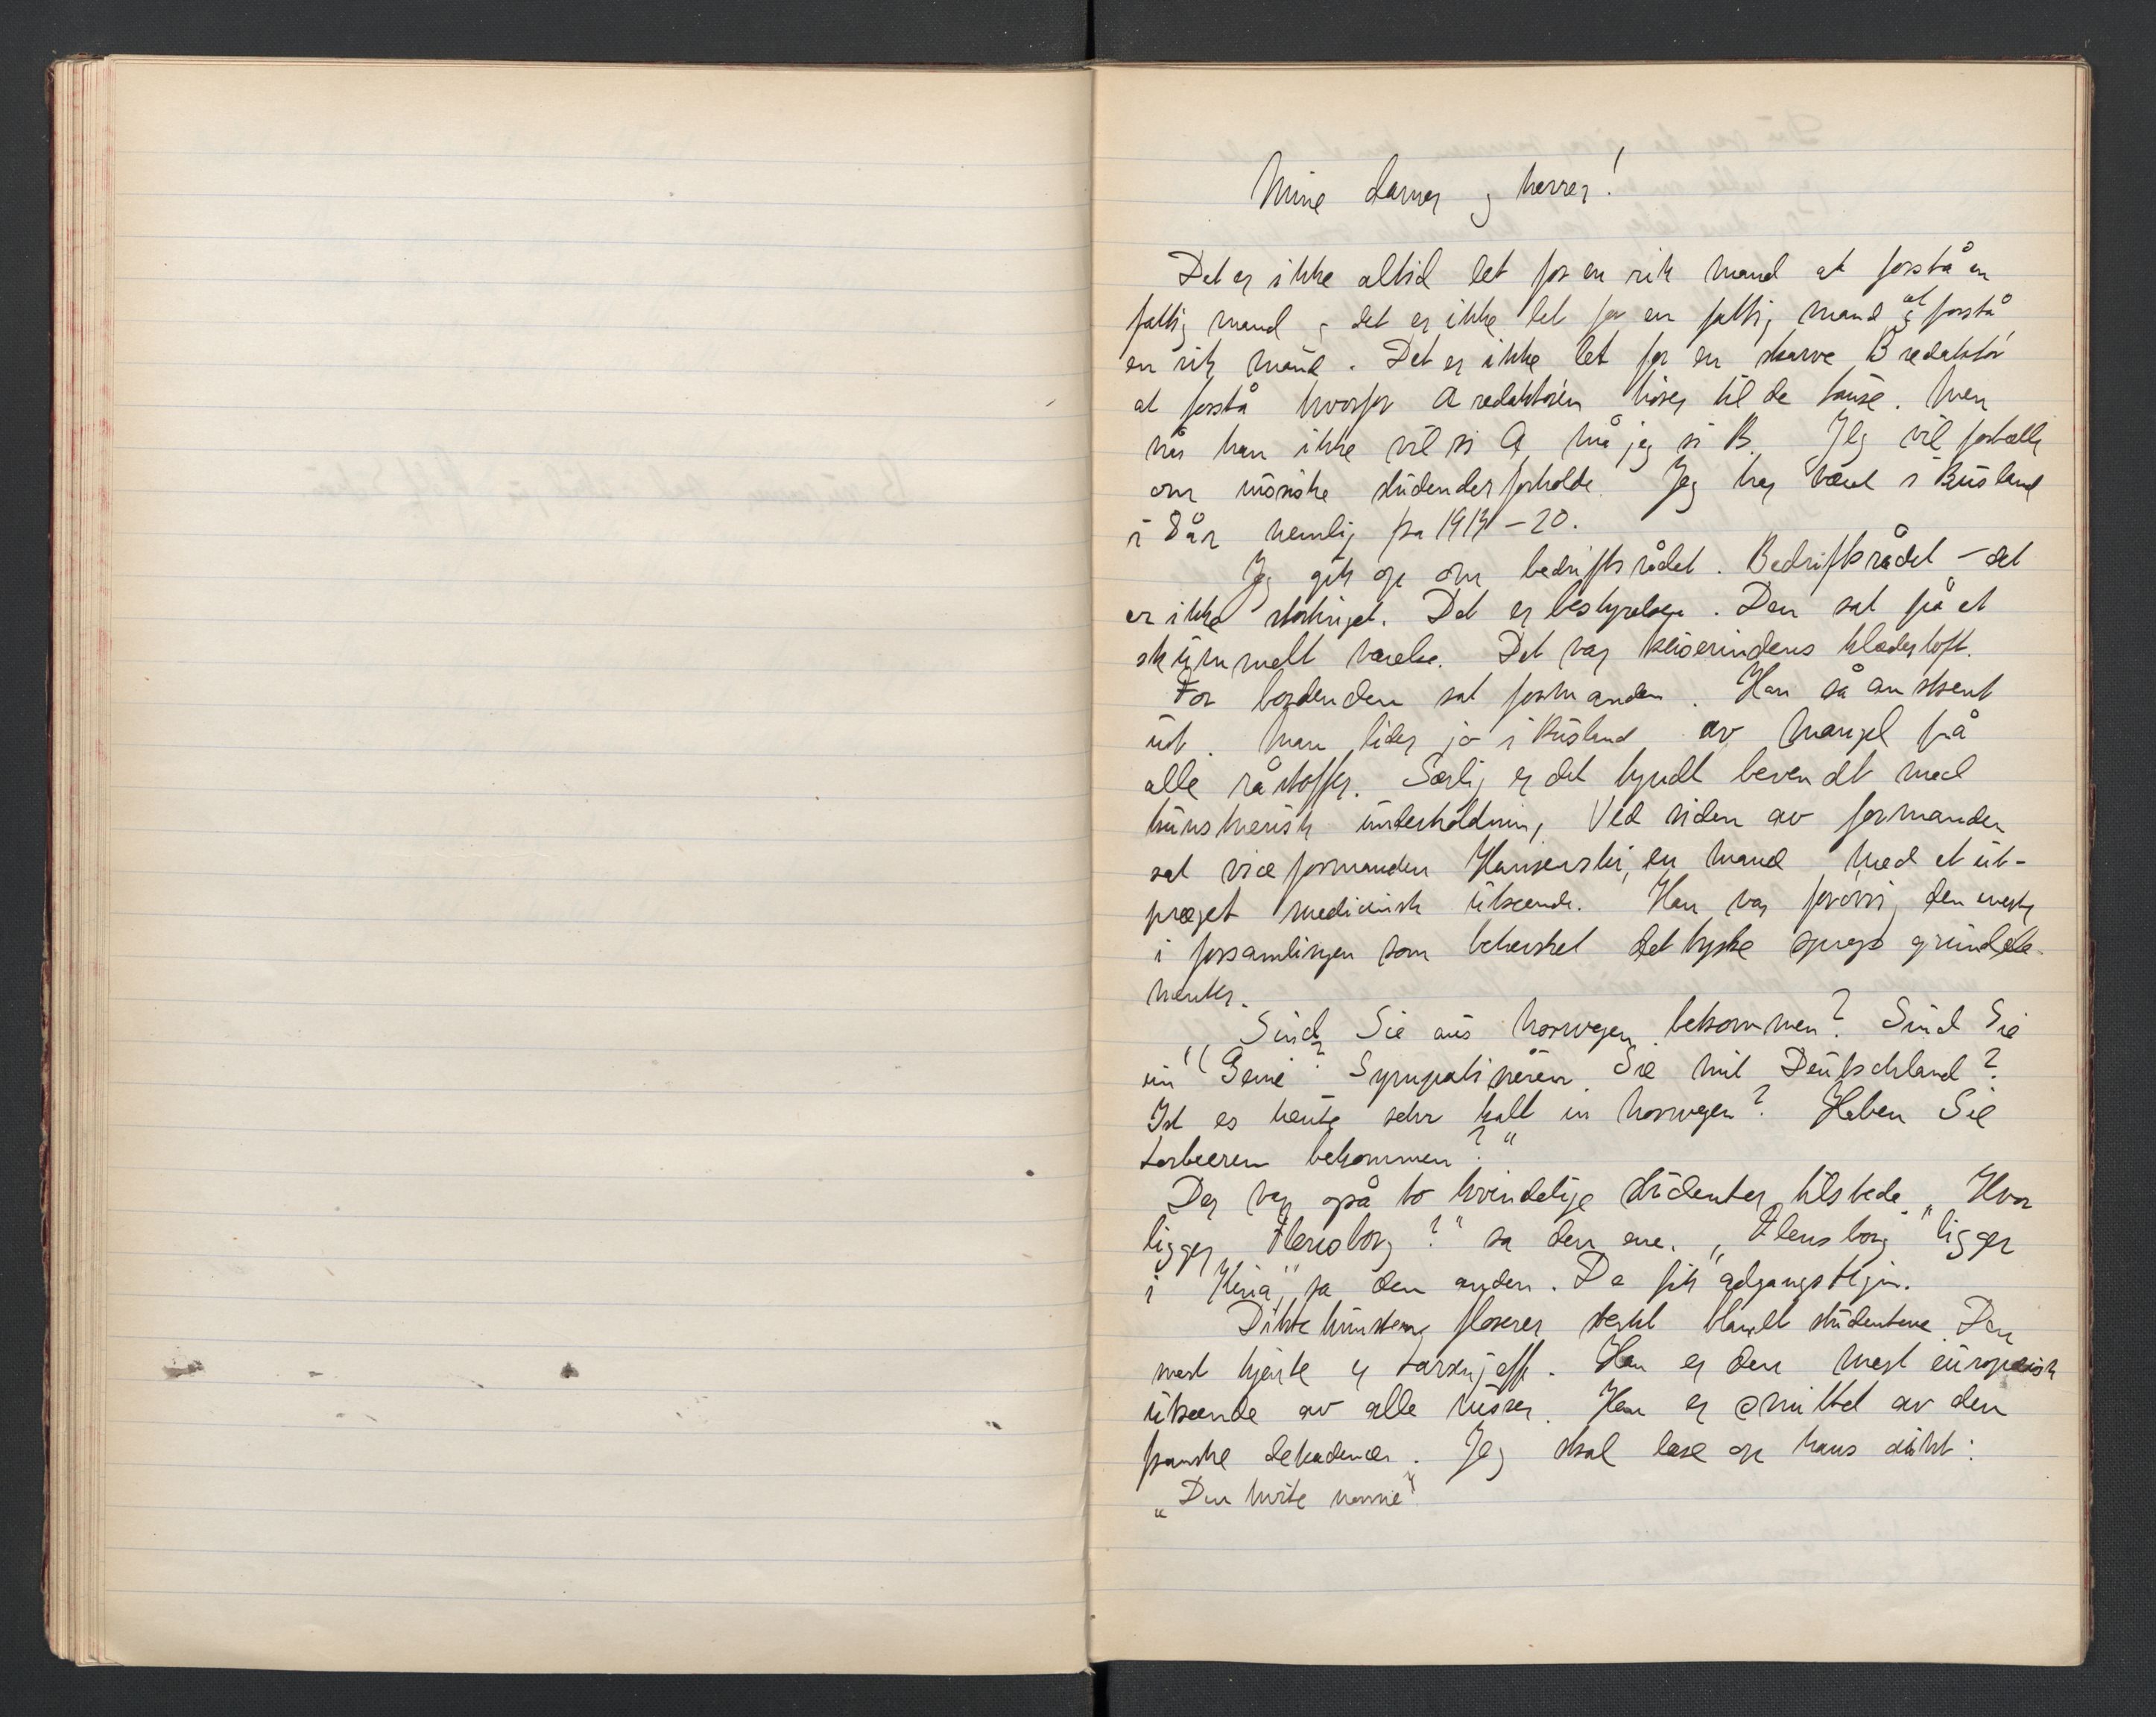 Mine damer og herrer!
Det er ikke altid let for en rik mand at forstå en
fattig mand og det er ikke let for en fattig mand at forstå
en rik mand. Det er ikke let for en skarve B redaktør
at forstå hvorfor A redaktøren hører til de tause. Men
når han ikke vil si A må jeg si B. Jeg vil fortælle
om russiske studenderforholde. Jeg har været i Rusland
i 8 år nemlig fra 1919-20.
Jeg gik op om bedriftsrådet. Bedriftsrådet - det
er ikke stortinget. Det er bestyrelsen. Den sat på et
skummelt værelse. Det var keiserindens klædesloft.
For bordenden sat formanden. Han så anstrent
ut. Man lider jo i Rusland av mangel på
alle råstoffer. Særlig er det tyndt bevendt med
kunstnerisk underholdning. Ved siden av formanden
sat viceformanden Hansenski, en mand med et ut-
præget medicinsk utseende. Han var forøvrig den eneste
i forsamlingen som behersket det tyske sprogs grundele-
menter.
„Sind Sie aus Norwegen bekommen? Sind Sie
un Geni? Sympatisieren Sie mit Deutschland?
Ist es heute sehr kalt in Norwegen? Haben Sie
Lorbeeren bekommen?"
Der var også to kvindelige studenter tilstede. „Hvor
ligger Flensborg?" sa den ene. „Flensborg ligger
i Kina", sa den anden. De fik adgangstegn.
Diktekunsten florerer sterkt blandt studentene. Den
mest kjente er Larsnjeff. Han er den mest europæisk
utseende av alle russer. Han er smittet av den
franske dekadence. Jeg skal læse op hans dikt:
„Den hvite nonne"